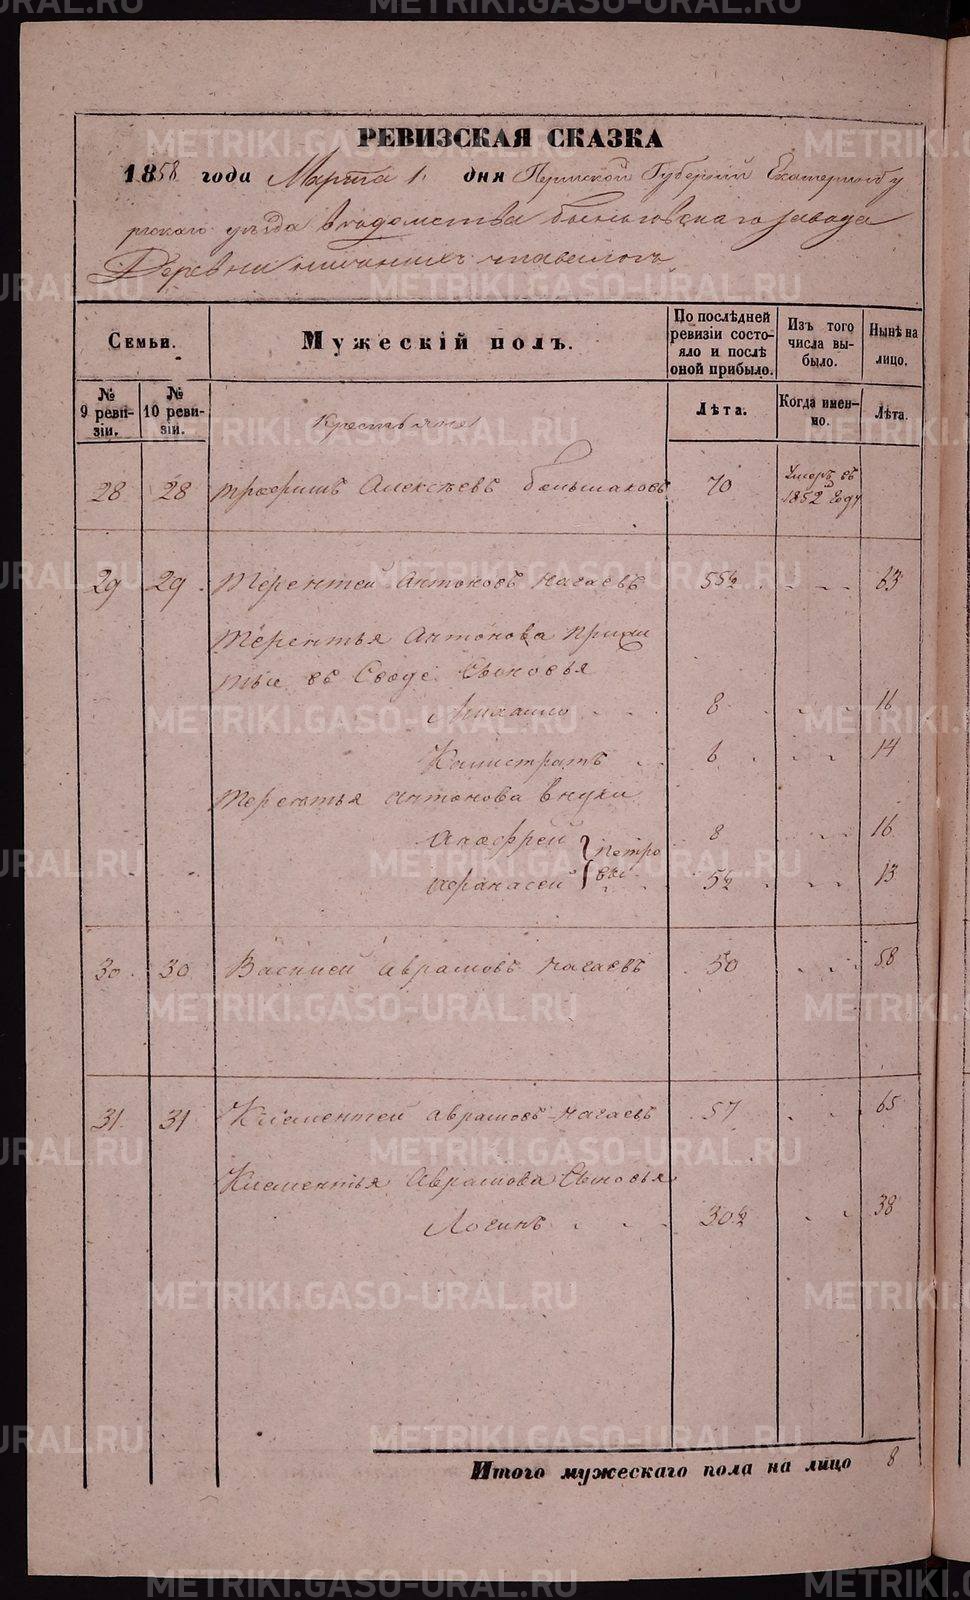 РЕВИЗСКАЯ СКАЗКА
1858 года Марта 1. дня Пермской Губернии Екатеринбу
ргскаго уезда ведомства Быньговскаго завода
Деревни нижнихъ тавологъ
Семьи.
Мужескій полъ.
По послѣдней ревизіи состояло и послѣ оной прибыло.
Изъ того числа выбыло.
Нынѣ на лицо.
№ 9 ревизіи.
№ 10 ревизіи.
Крестьяне
Лѣта.
Когда именно.
Лѣта.
28 28 Трофимъ Алексѣевъ большаковъ 70 Умеръ въ 1852 Году
29 29. Терентей Антоновъ Нагаевъ 55½ 63
Терентья Антонова прижи
тые въ Сводѣ Сыновья
Михаило 8 16
Калистратъ 6 14
Терентья Антонова внуки
Анофрей } Петро 8 16
Афанасей } вы 5½ 13
30. 30. Василей Аврамовъ Нагаевъ 50 58
31. 31 Климентей Аврамовъ Нагаевъ 57 65
Климентья Аврамова Сыновья
Логинъ 30½ 38
Итого мужескаго пола на лицо 8
METRIKI.GASO-URAL.RU